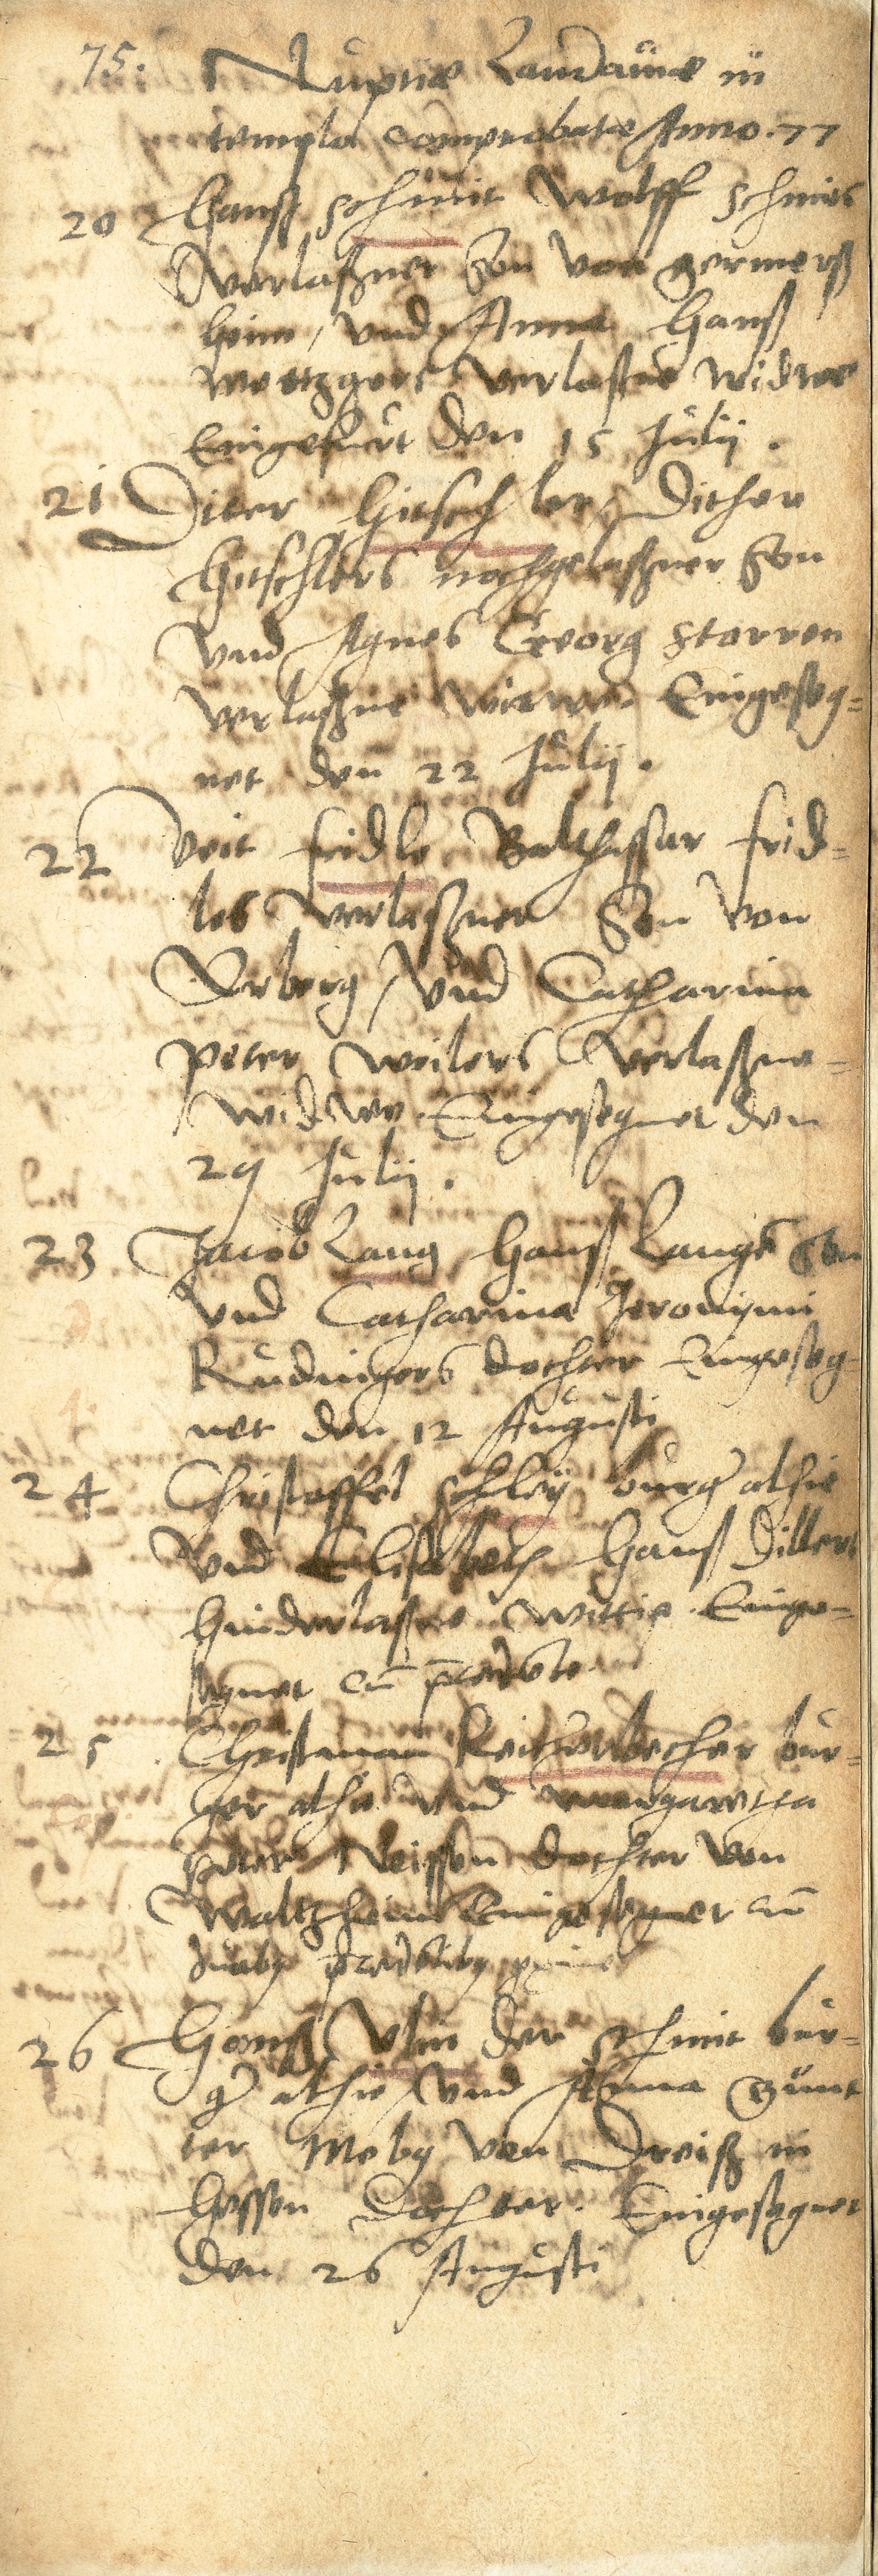 75. Nuptiæ Landauiæ in
templo comprobatæ Anno. 77
20 Hanß Schmit Wolff Schmits
verlaßner Son von germerß
heim, vnd Anna Hanß
Metzgers verlaßne widwe
Eingefürt den 15 Julij.
21 Diter Hitschler, Dither
Hitschlers nochgelaßner Son
vnd Agnes Georg Starren
verlaßne witwe. Eingeseg=
net den 22 Julij.
22 Veit fridle Balthassar frid=
les verlaßner Son von
Erberg, vnd Catharina
peter weilers verlaßne=
widwe. Eingesegnet den
29 Julij.
23 Jacob Lang Hanß Langs Son
vnd Catharina Jeronimi
Rudingers dochter Eingeseg
net den 12 Augusti
24 Christoffel Schleÿ burger alhie
vnd Elisabeth Hanß Dillers
hinderlaßne wittie. Einge=
segnet cum præcedente
25 Christman bur=
ger alhie vnd margaretha
peter Neissen dochter von
Waltzheim Eingesegnet cum
duabus præcedentibus
26 Hanß Vlin der schmit bur=
ger alhie, vnd Anna Günt
ter Mebg von Dreiß in
Hessen dochter. Eingesegnet
den 26 Augusti